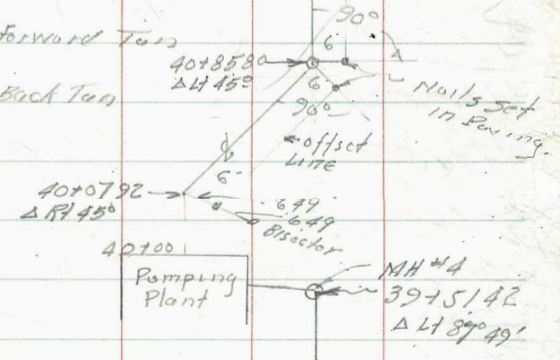 90°
Forward Tan
6
40+8580
Δ Lt 45°
6
Back Tan
90°
Nails Set
in Paving.
offset
Line
6'
40+0792
Δ Rt 45°
6.49
6.49
Bisector
40+00
Pumping
Plant
MH #4
39+5142
Δ Lt 89° 49'